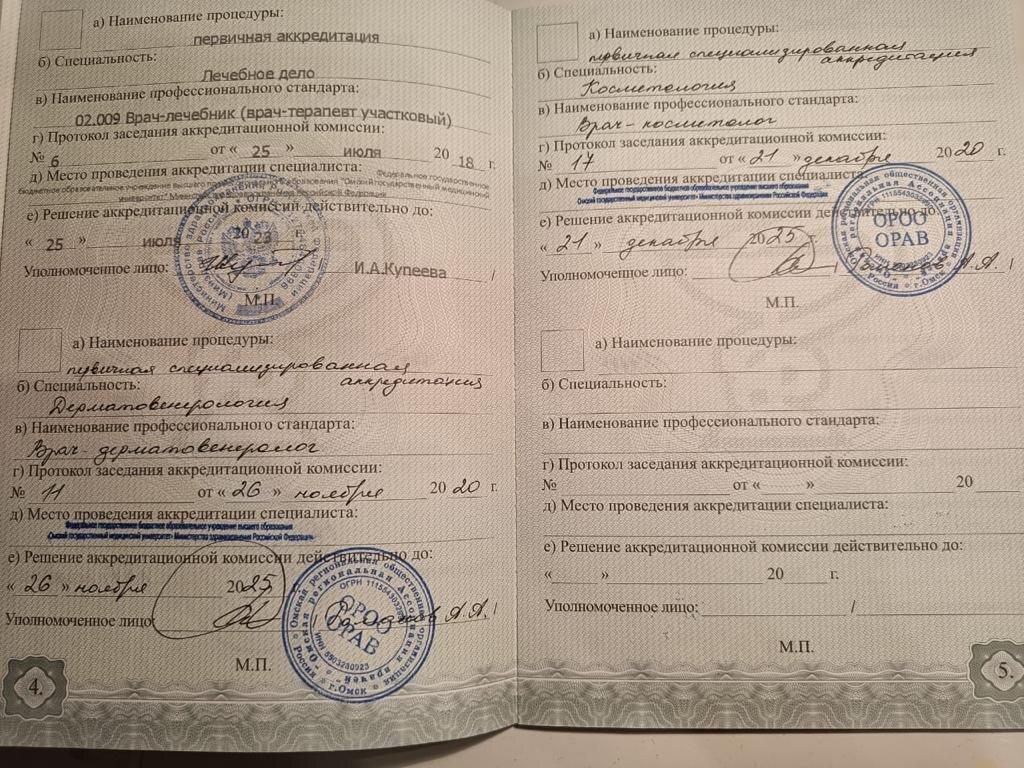 а) Наименование процедуры:
первичная аккредитация
б) Специальность:
Лечебное дело
в) Наименование профессионального стандарта:
02.009 Врач-лечебник (врач-терапевт участковый)
г) Протокол заседания аккредитационной комиссии:
№ 6 от « 25 » июля 20 18 г.
д) Место проведения аккредитации специалиста:
Федеральное государственное
бюджетное образовательное учреждение высшего образования "Омский государственный медицинский
университет" Министерства здравоохранения Российской Федерации
е) Решение аккредитационной комиссии действительно до:
« 25 » июля 20 23 г.
Уполномоченное лицо: И.А.Купеева /
М.П.
а) Наименование процедуры:
первичная специализированная
аккредитация
б) Специальность:
Дерматовенерология
в) Наименование профессионального стандарта:
Врач-дерматовенеролог
г) Протокол заседания аккредитационной комиссии:
№ 11 от « 26 » ноября 20 20 г.
д) Место проведения аккредитации специалиста:
Федеральное государственное бюджетное образовательное учреждение высшего образования
«Омский государственный медицинский университет» Министерства здравоохранения Российской Федерации
е) Решение аккредитационной комиссии действительно до:
« 26 » ноября 2025 г.
Уполномоченное лицо: / А.А. /
Омская региональная общественная организация
Омская региональная Ассоциация врачей
ОГРН
ОРОО
ОРАВ
ИНН 5503230923
Россия г.Омск
М.П.
4.
а) Наименование процедуры:
первичная специализированная
аккредитация
б) Специальность:
Косметология
в) Наименование профессионального стандарта:
Врач-косметолог
г) Протокол заседания аккредитационной комиссии:
№ 17 от « 21 » декабря 20 20 г.
д) Место проведения аккредитации специалиста:
Федеральное государственное бюджетное образовательное учреждение высшего образования
«Омский государственный медицинский университет» Министерства здравоохранения Российской Федерации
е) Решение аккредитационной комиссии действительно до:
« 21 » декабря 2025 г.
Уполномоченное лицо: / А.А. /
ОРОО
ОРАВ
Россия г.Омск
М.П.
а) Наименование процедуры:
б) Специальность:
в) Наименование профессионального стандарта:
г) Протокол заседания аккредитационной комиссии:
№ от « » 20
д) Место проведения аккредитации специалиста:
е) Решение аккредитационной комиссии действительно до:
« » 20 г.
Уполномоченное лицо: /
М.П.
5.